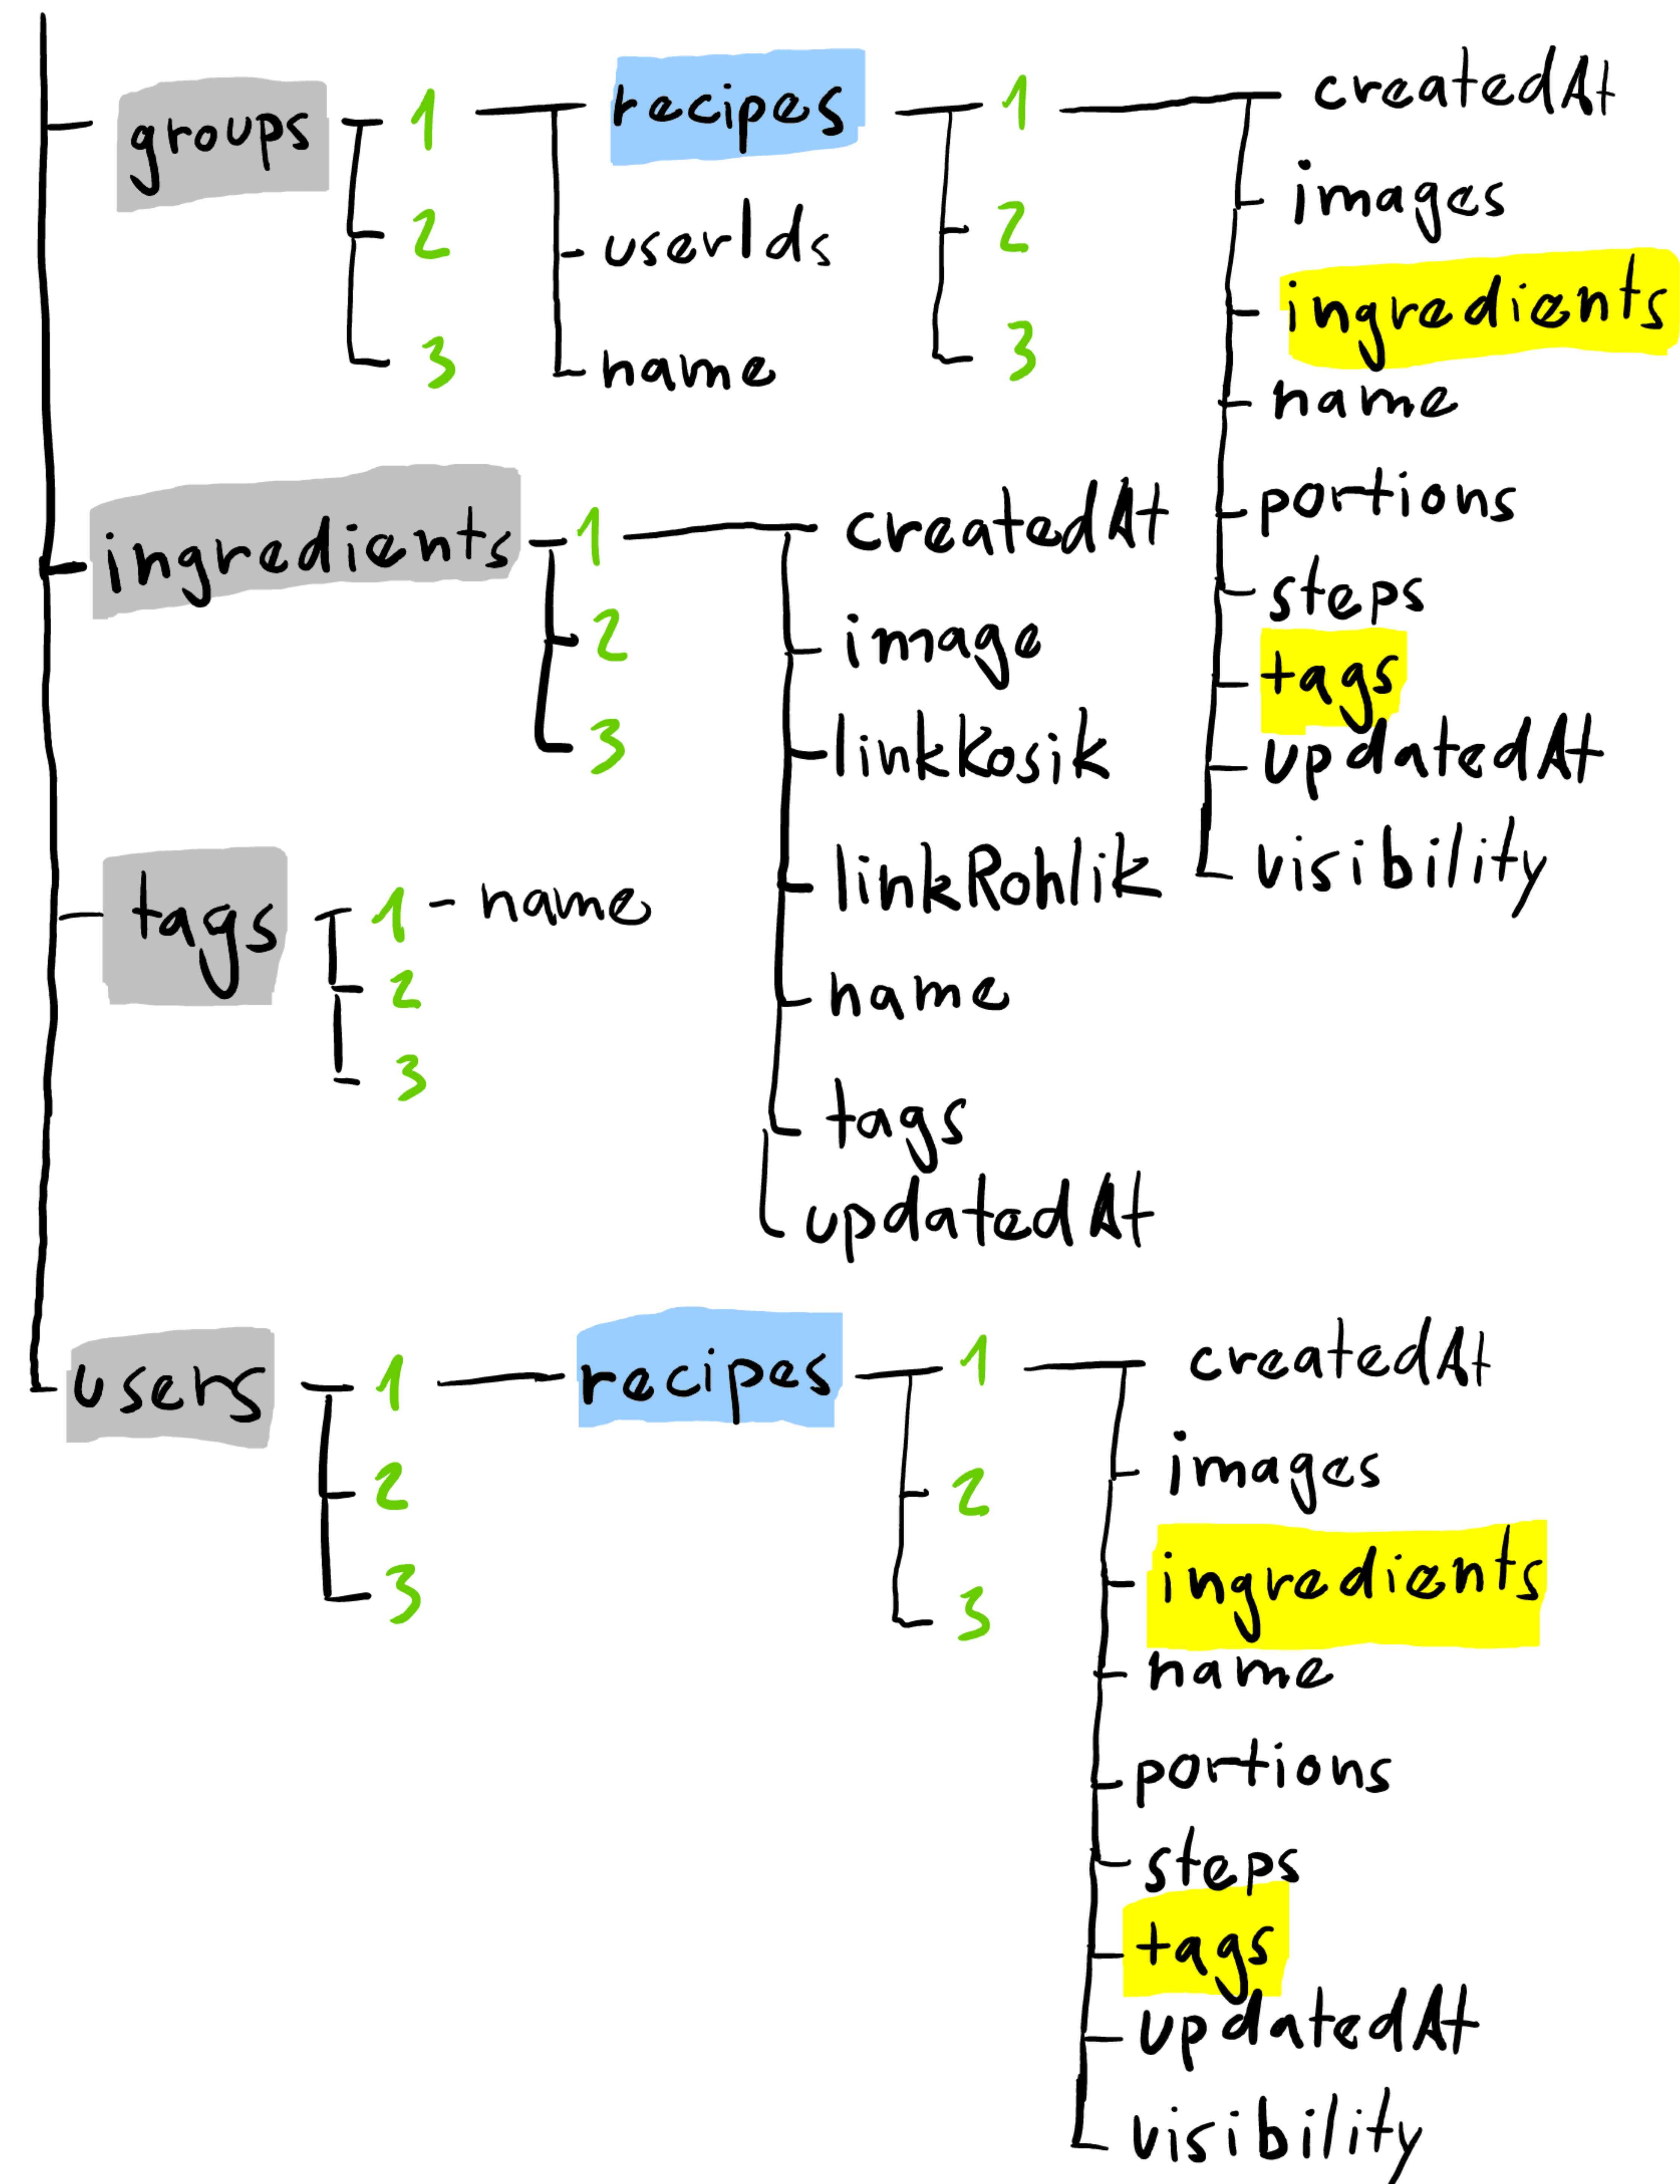 groups 1 recipes 1 createdAt
2 userIds 2 images
3 name 3 ingredients
name
portions
steps
tags
updatedAt
visibility
ingredients 1 createdAt
2 image
3 linkKosik
linkRohlik
name
tags
updatedAt
tags 1 - name
2
3
users 1 recipes 1 createdAt
2 2 images
3 3 ingredients
name
portions
steps
tags
updatedAt
visibility